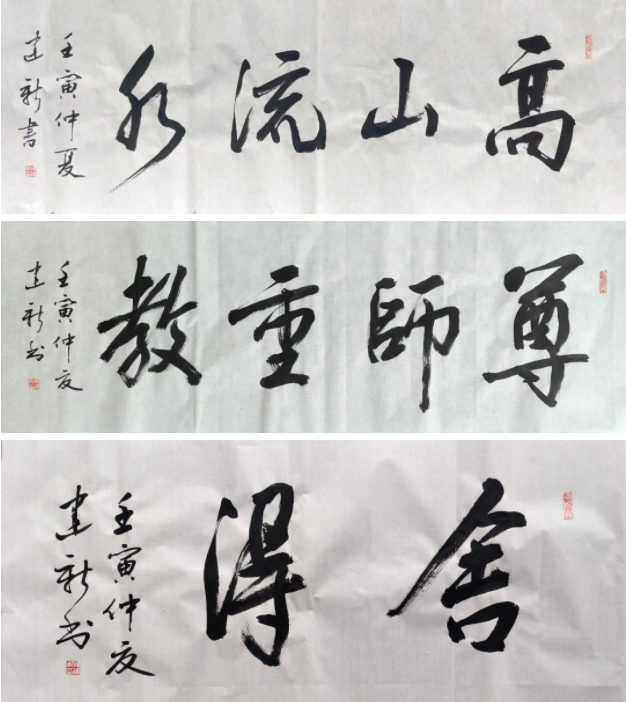 高山流水
壬寅仲夏
建新書
尊師重教
壬寅仲夏
建新书
舍得
壬寅仲夏
建新书